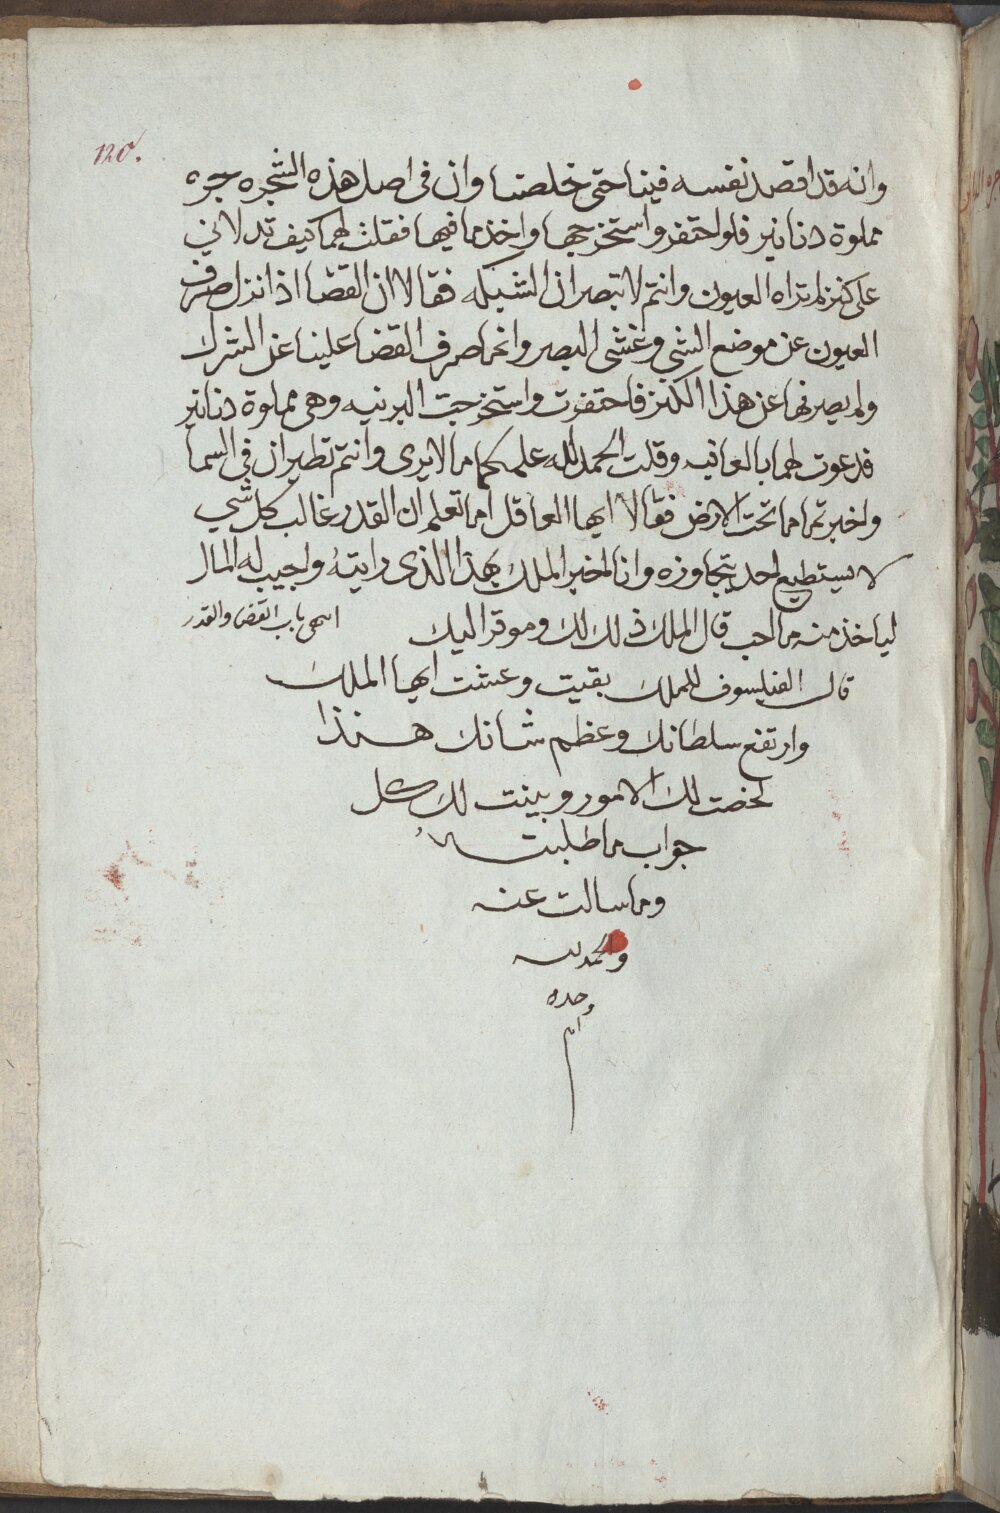 120.
وانه قد اقصد نفسه فينا حتى خلصتنا وان في اصل هذه الشجره جره
مملوة دنانير فلو احتفر واستخرجها واخذ ما فيها فقلت لهما كيف تدلاني
على كنز لم تراه العيون وانتم لا تبصران الشبكه فقالا ان القضا اذا نزل صرف
العيون عن موضع الشي وغشى البصر وانما صرف القضا علينا عن الشرك
ولم يصرفها عن هذا الكنز فاحتفرت واستخرجت البرنيه وهي مملوة دنانير
فدعوت لهما بالعافيه وقلت الحمد لله علمكما ما لا يرى وانتم تطيران في السما
واخبرتما مما تحت الارض فقالا ايها العاقل اما تعلم ان القدر غالب كل شي
لا يستطيع احد يتجاوزه وانا اخبر الملك بهذا الذي رايته واجيب له المال
لياخذ منه ما احب قال الملك ذلك لك وموقر اليك
انتهى باب القضا والقدر
قال الفيلسوف للملك بقيت وعشت ايها الملك
وارتفع سلطانك وعظم شانك هنذا
لخصت لك الامور وبينت لك كل
جواب ما طلبت
وما سالت عنه
والحمد لله
وحده
تم